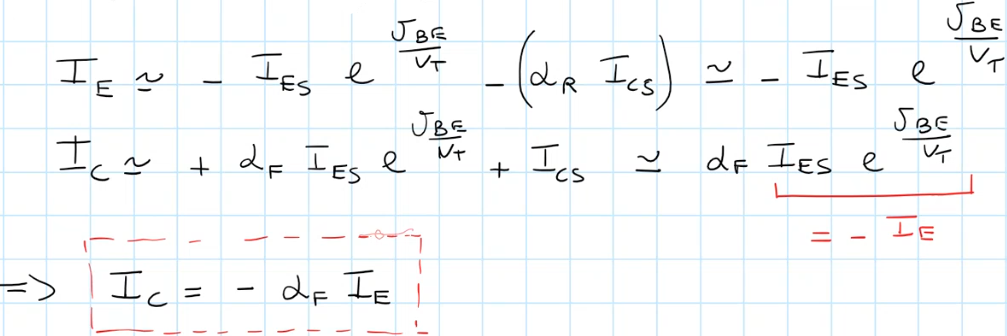 I_E ≃ - I_ES e^(V_BE/V_T) - (α_R I_CS) ≃ - I_ES e^(V_BE/V_T)
I_C ≃ + α_F I_ES e^(V_BE/V_T) + I_CS ≃ α_F I_ES e^(V_BE/V_T)
= - I_E
=> I_C = - α_F I_E